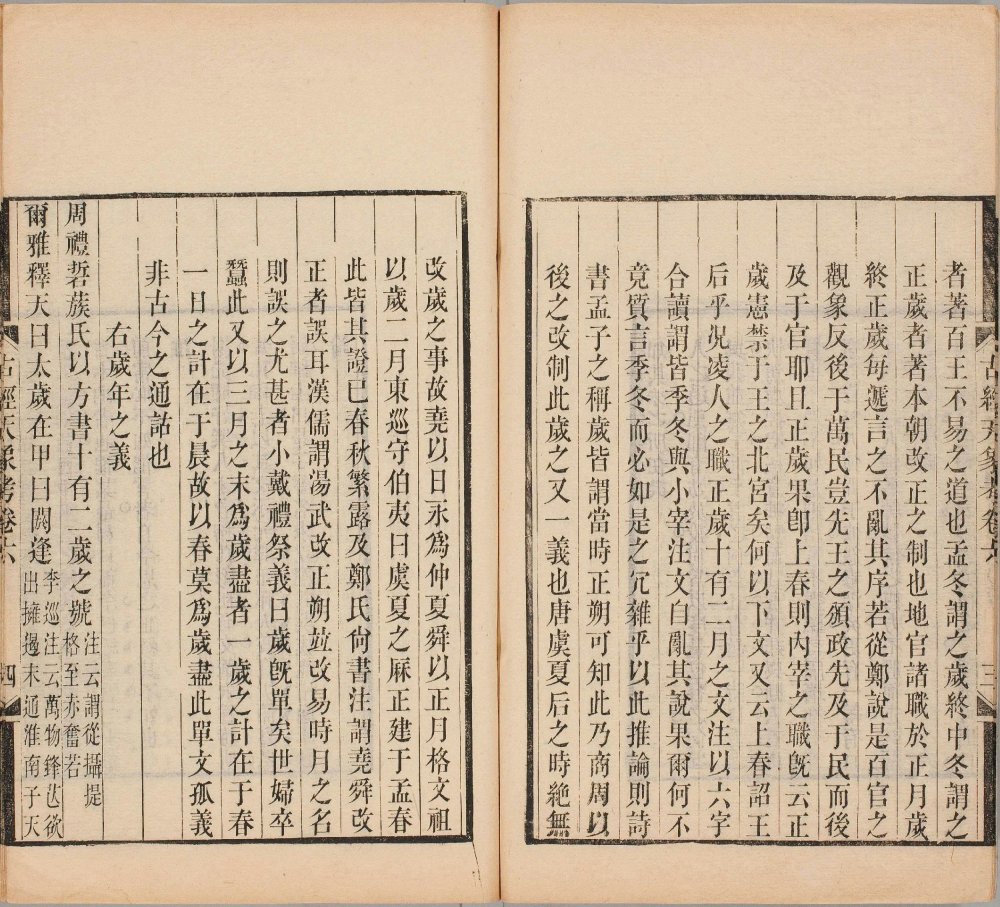 者著百王不易之道也孟冬謂之歲終中冬謂之
正歲者著本朝改正之制也地官諸職於正月歲
終正歲每遞言之不亂其序若從鄭說是百官之
觀象反後于萬民豈先王之頒政先及于民而後
及于官耶且正歲果卽上春則內宰之職旣云正
歲憲禁于王之北宮矣何以下文又云上春詔王
后乎况凌人之職正歲十有二月之文注以六字
合讀謂皆季冬與小宰注文自亂其說果爾何不
竟質言季冬而必如是之冗雜乎以此推論則詩
書孟子之稱歲皆謂當時正朔可知此乃商周以
後之改制此歲之又一義也唐虞夏后之時絶無
三
改歲之事故堯以日永爲仲夏舜以正月格文祖
以歲二月東巡守伯夷曰虞夏之厤正建于孟春
此皆其證已春秋繁露及鄭氏尙書注謂堯舜改
正者誤耳漢儒謂湯武改正朔竝改易時月之名
則誤之尤甚者小戴禮祭義曰歲旣單矣世婦卒
蠶此又以三月之末爲歲盡者一歲之計在于春
一日之計在于晨故以春莫爲歲盡此單文孤義
非古今之通詁也
右歲年之義
周禮硩蔟氏以方書十有二歲之號注云謂從攝提格至赤奮若
爾雅釋天曰太歲在甲曰閼逢李巡注云萬物鋒芒欲出擁遏未通淮南子天
古經天象考卷六
四